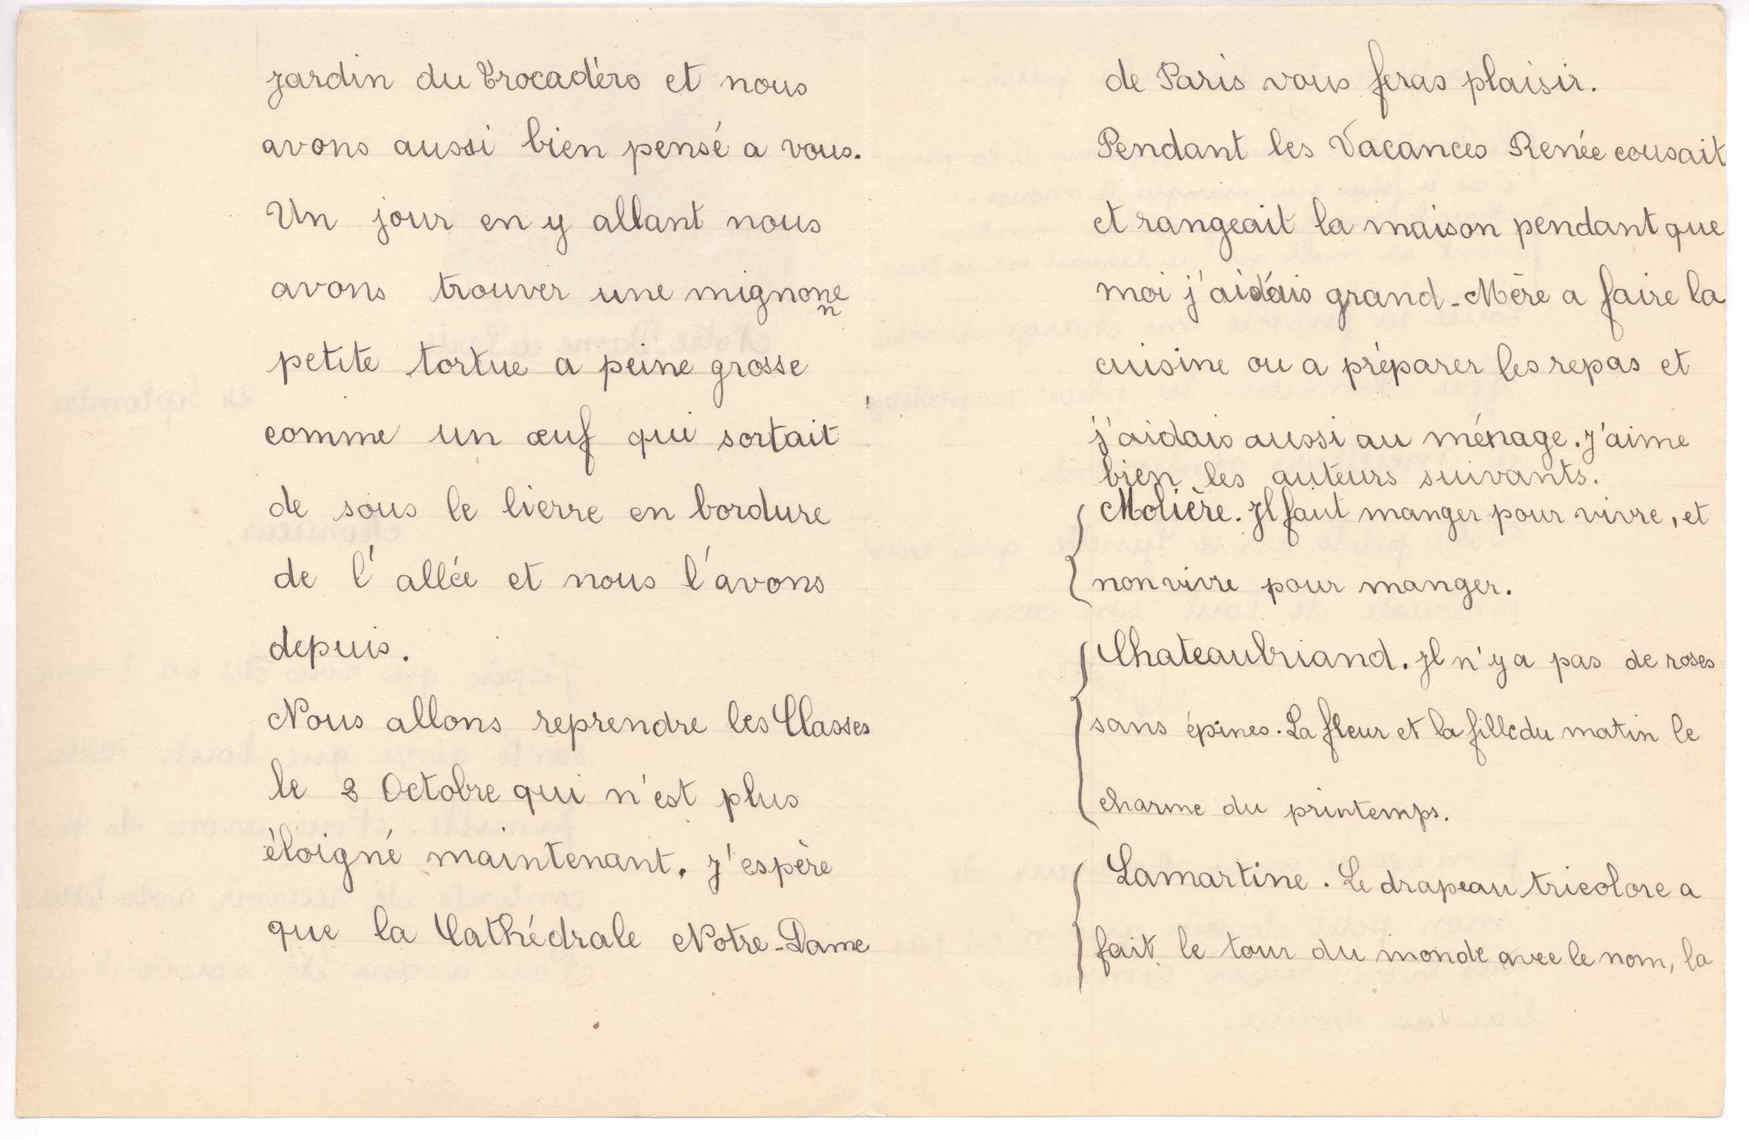 jardin du Trocadéro et nous
avons aussi bien pensé a vous.
Un jour en y allant nous
avons trouver une mignone
n
petite tortue a peine grosse
comme un œuf qui sortait
de sous le lierre en bordure
de l'allée et nous l'avons
depuis.
Nous allons reprendre les Classes
le 2 Octobre qui n'est plus
éloigné maintenant. j'espère
que la Cathédrale Notre-Dame
de Paris vous feras plaisir.
Pendant les Vacances Renée cousait
et rangeait la maison pendant que
moi j'aidais grand-Mère a faire la
cuisine ou a préparer les repas et
j'aidais aussi au ménage. j'aime
bien les auteurs suivants.
Molière. Il faut manger pour vivre, et
non vivre pour manger.
Chateaubriand. Il n'y a pas de roses
sans épines. La fleur et la fille du matin le
charme du printemps.
Lamartine. Le drapeau tricolore a
fait le tour du monde avec le nom, la